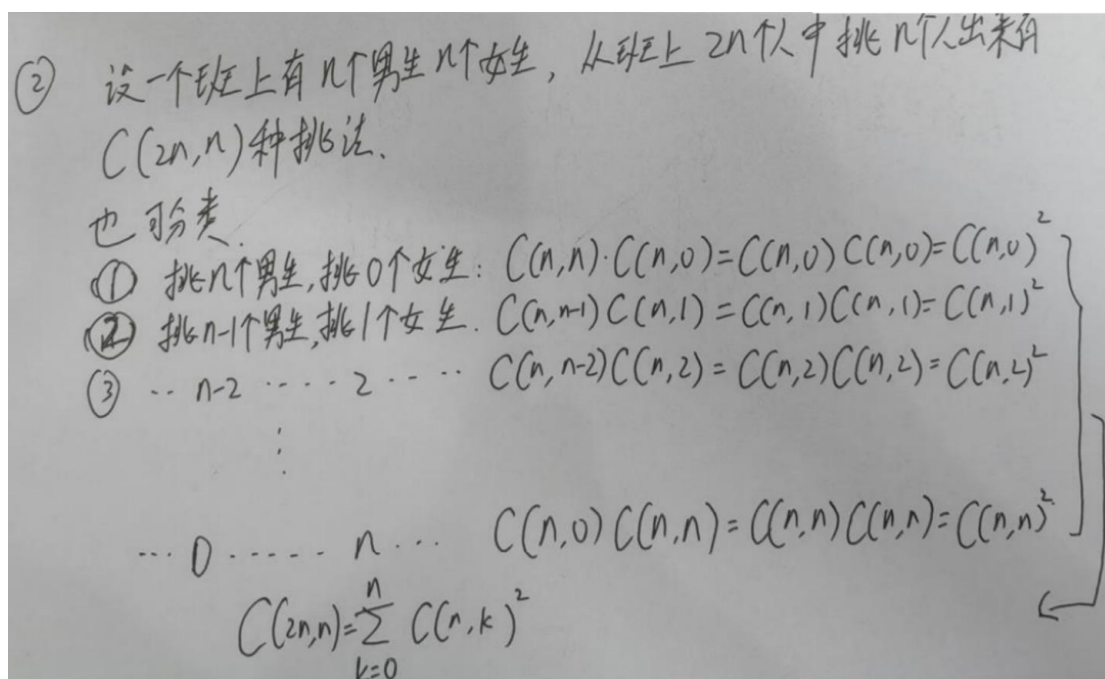 ② 设一个班上有n个男生n个女生，从班上2n个人中挑n个人出来有
C(2n,n)种挑法.
也可分类.
① 挑n个男生,挑0个女生: C(n,n)·C(n,0)=C(n,0)C(n,0)=C(n,0)²
② 挑n-1个男生,挑1个女生. C(n,n-1)C(n,1)=C(n,1)C(n,1)=C(n,1)²
③ ‥ n-2 ···· 2 ····· C(n,n-2)C(n,2)=C(n,2)C(n,2)=C(n,2)²
⋮
··· 0 ······ n ··· C(n,0)C(n,n)=C(n,n)C(n,n)=C(n,n)²
C(2n,n)=∑_{k=0}^{n} C(n,k)²